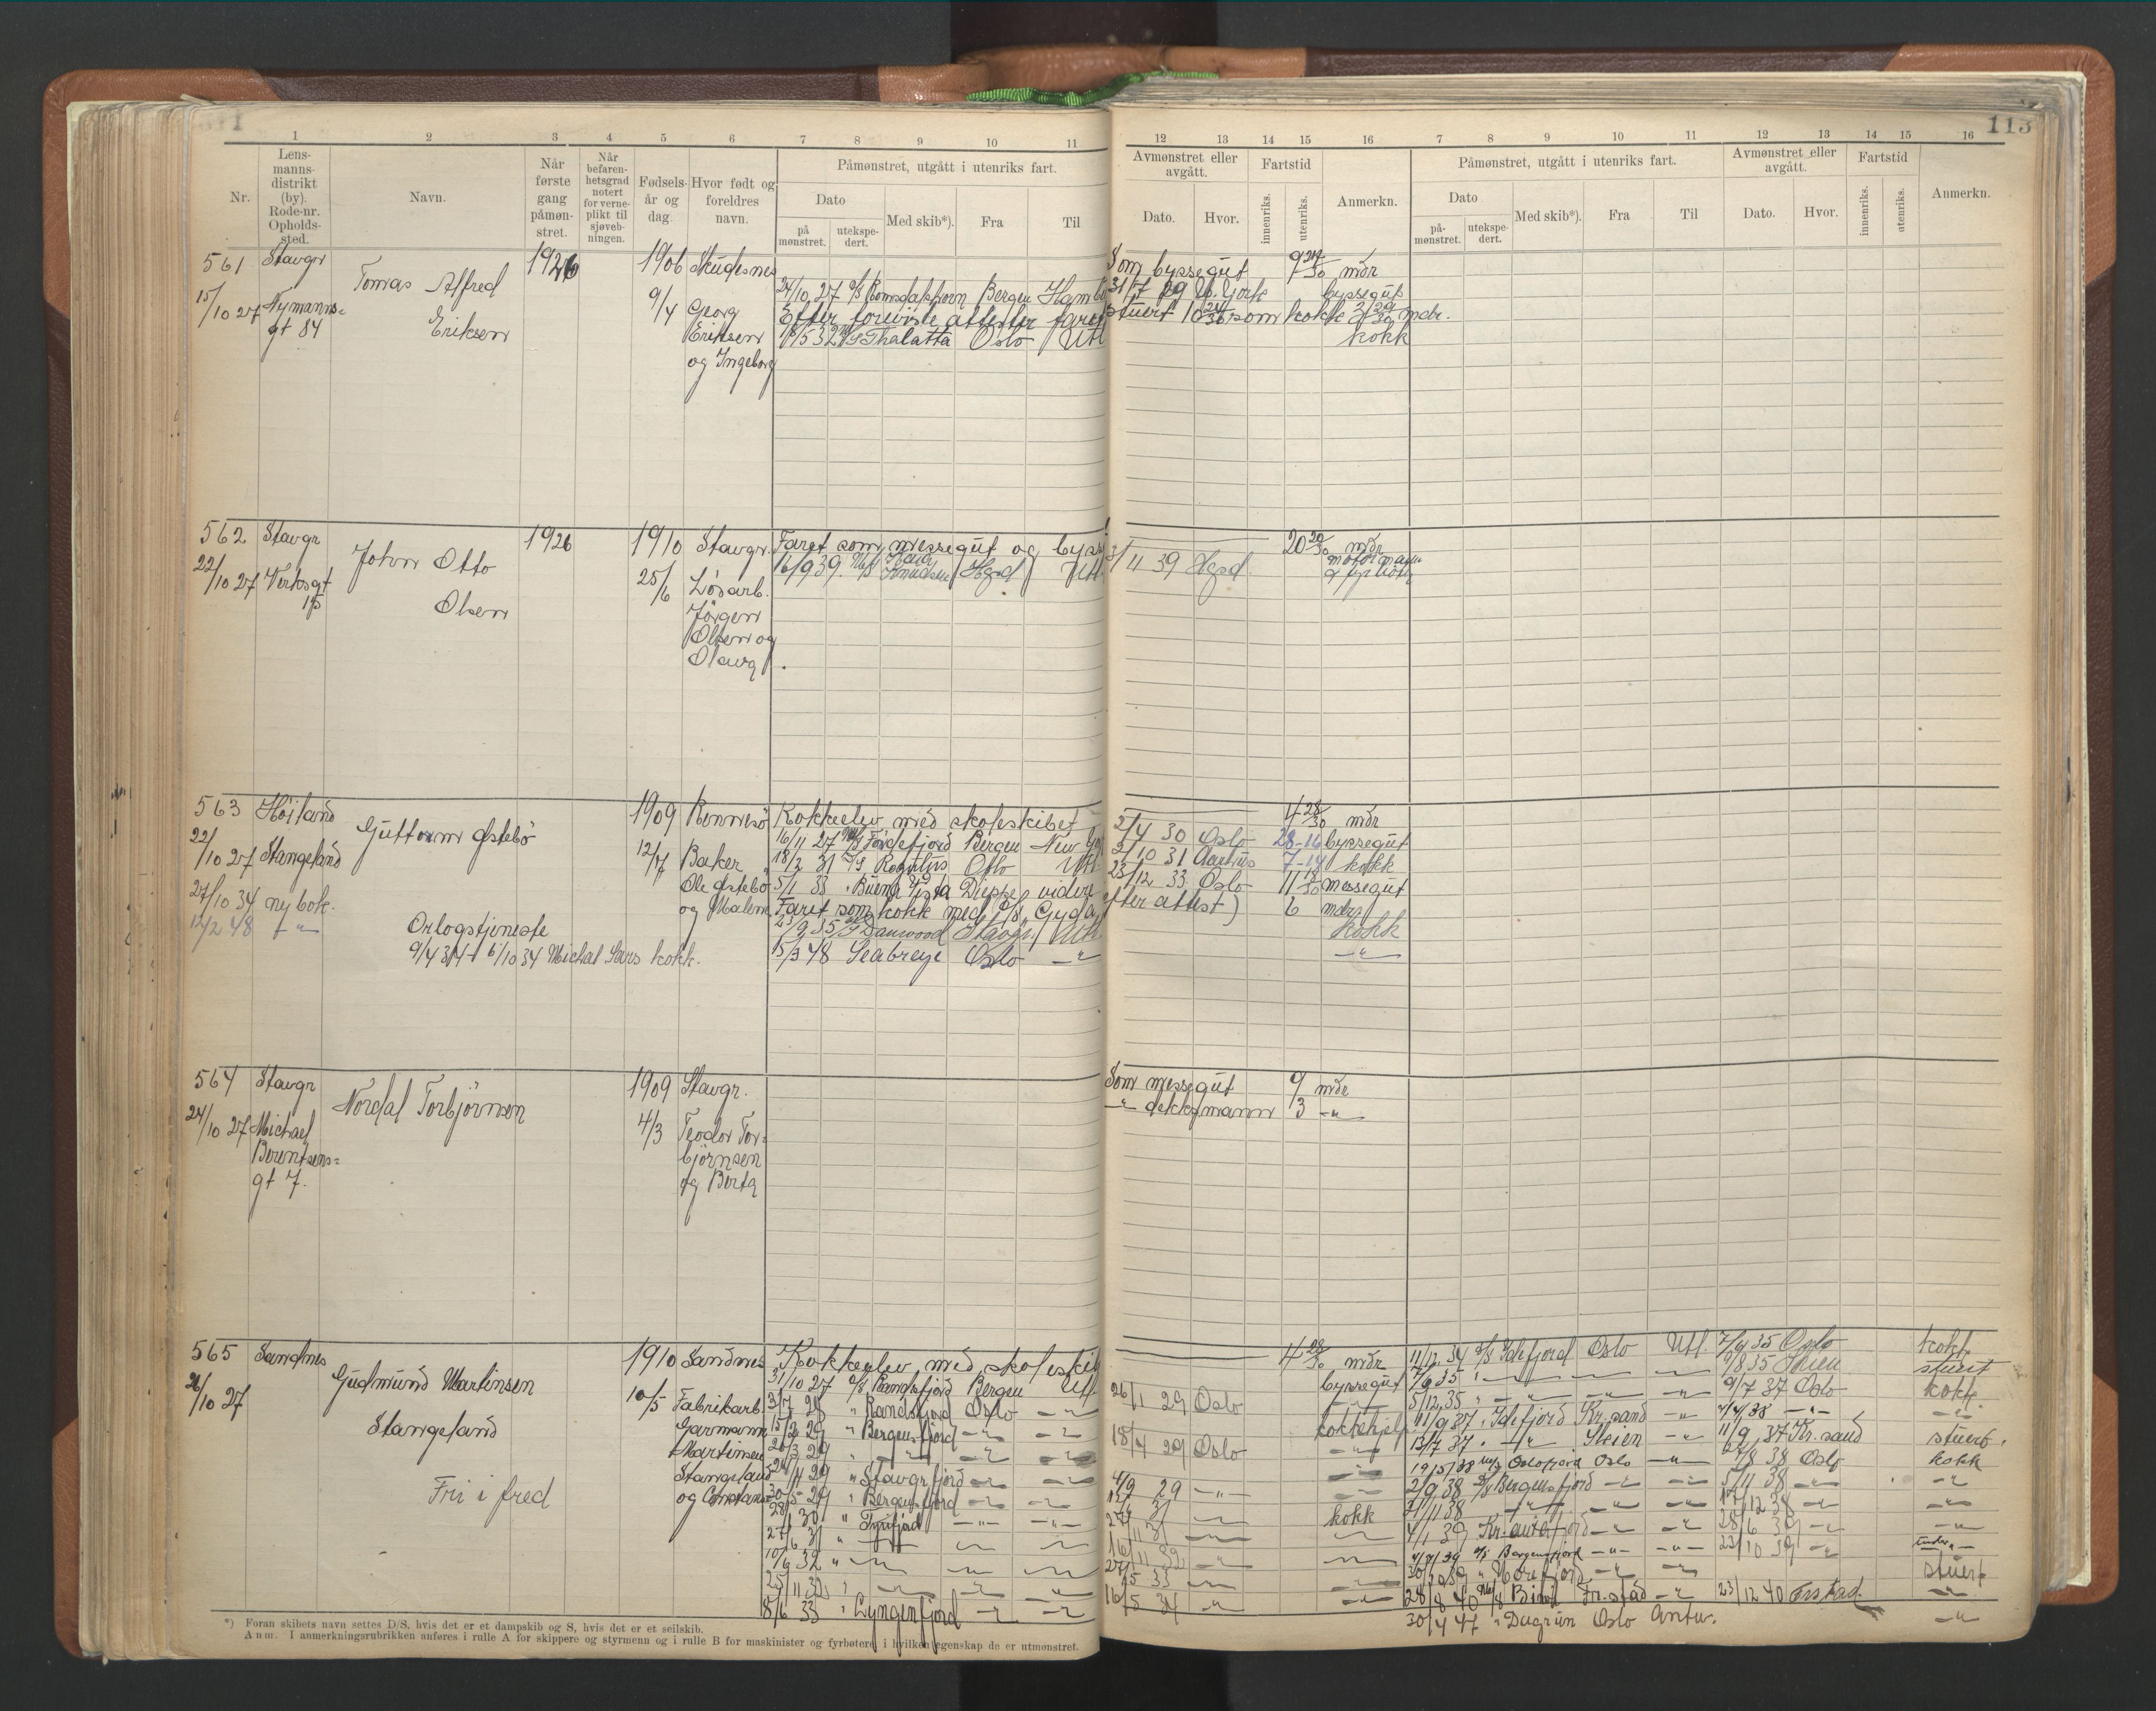 113
1 2 3 4 5 6 7 8 9 10 11 12 13 14 15 16 7 8 9 10 11 12 13 14 15 16
Nr.
Lens-
manns-
distrikt
(by).
Rode-nr.
Opholds-
sted.
Navn.
Når
første
gang
påmøn-
stret.
Når
befaren-
hetsgrad
notert
for verne-
plikt til
sjøveb-
ningen.
Fødsels-
år og
dag.
Hvor født og
foreldres
navn.
Påmønstret, utgått i utenriks fart.
Dato
på
mønstret.
utekspe-
dert.
Med skib*).
Fra
Til
Avmønstret eller
avgått.
Dato.
Hvor.
Fartstid
innenriks.
utenriks.
Anmerkn.
Påmønstret, utgått i utenriks fart.
Dato
på-
mønstret.
utekspe-
dert.
Med skib*).
Fra
Til
Avmønstret eller
avgått.
Dato.
Hvor.
Fartstid
innenriks.
utenriks.
Anmerkn.
561 Stavgr
15/10 27 Nymanns=
gt 84
Tomas Alfred
Eriksen
1926
1906
9/4
Skudesnes
Georg
Eriksen
og Ingeborg
Som byssegut mdr
24/10 27 D/S Romsdalshorn Bergen 31/7 29 N. York byssegut
Efter foreviste attester faret stuert 10 som kokk 3 mdr.
M/S Thalatta Oslo Utl kokk
562 Stavgr
22/10 27 Verksgt
15
John Otto
Olsen
1926
1910
25/6
Stavgr.
Løsarb.
Jørgen
Olsen og
Olava
Faret som messegut og 20 20/30 mdr
16/9 39 Knudsen Hgsd Utl 3/11 39 Hgsd motormann
563 Høiland
22/10 27 Stangeland
27/10 34 ny bok.
12/2 48 - " -
Guttorm Østebö
Orlogstjeneste
9/4 34 - 6/10 34 Michal Sars kokk.
1909
12/7
Rennesö
Baker
Ole Østebö
og Malene
Kokkeelev med skoleskibet 4 28/30 mdr
16/11 27 M/S Fördefjord Bergen New 2/4 30 Oslo 28-16 byssegut
18/2 31 D/S Regulus Oslo Utl 2/10 31 Aarhus 7-14 kokk
5/1 33 " Buena Vista Dieppe videre 23/12 33 Oslo 11 messegut
Faret som kokk med D/S Gyda efter attest) 6 mdr
23/9 35 Danwood Stavgr. Utl kokk
15/3 48 Seabreze Oslo - " - - " -
564 Stavgr
24/10 27 Michael
Berentsens=
gt 7.
Nordal Torbjörnsen
1909
4/3
Stavgr.
Teodor Tor=
björnsen
og Berta
Som messegut 9 mdr
- " - dekksmann 3 - " -
565 Sandnes
26/10 27
Gudmund Martinsen
Stangeland
Fri i fred
1910
10/5
Sandnes
Fabrikarb.
Garmann
Martinsen
Stangeland
og Constanse
Kokkeelev med skoleskib 4 28/30 mdr
31/10 27 D/S Randsfjord Bergen Utl. byssegut
3/7 28 " Randsfjord Oslo - " - 26/1 29 Oslo
15/2 29 " Bergensfjord - " - - " - kokkehjelp
20/3 29 " - " - - " - 18/4 29 Oslo - " -
24/4 29 " Stavgrfjord - " - - " -
30/5 29 " Bergensfjord - " - - " - 4/9 29 - " -
28/1 30 " Tyrifjord - " - - " - kokk
27/6 31 " - " -
10/6 32 " - " - 16/11 32 - " -
25/11 32 " - " -
8/6 33 " Lyngenfjord - " - - " - 16/5 34 - " -
11/12 34 D/S Idefjord Oslo Utl. 7/6 35 Oslo kokk
7/6 35 " - " - 9/8 35 Skien stuert
5/12 35 " - " - 9/7 37 Oslo kokk.
11/9 37 " Idefjord Kr.sand - " - 4/4 38 - " - - " -
13/7 37 " - " - Skien - " - 11/9 37 Kr.sand stuert.
19/5 38 M/S Oslofjord Oslo - " - 27/8 38 Oslo kokk
2/9 38 D/S Bergensfjord - " - - " - 5/11 38 - " - - " -
11/11 38 - " - - " - - " - 17/12 38 - " -
4/1 39 Kr.aniafjord - " - - " - 28/6 39 - " - - " -
4/7 39 D/S Bergensfjord - " - - " - 23/10 39 - " -
30/10 39 " Norefjord - " - - " - stuert
28/8 40 M/S Binti Fr.stad - " - 23/12 40 Frstad. - " -
30/4 47 " Dagrun Oslo Antw. - " -
*) Foran skibets navn settes D/S, hvis det er et dampskib og S, hvis det er et seilskib.
Anm. I anmerkningsrubrikken anføres i rulle A for skippere og styrmenn og i rulle B for maskinister og fyrbøtere, i hvilken egenskap de er utmønstret.